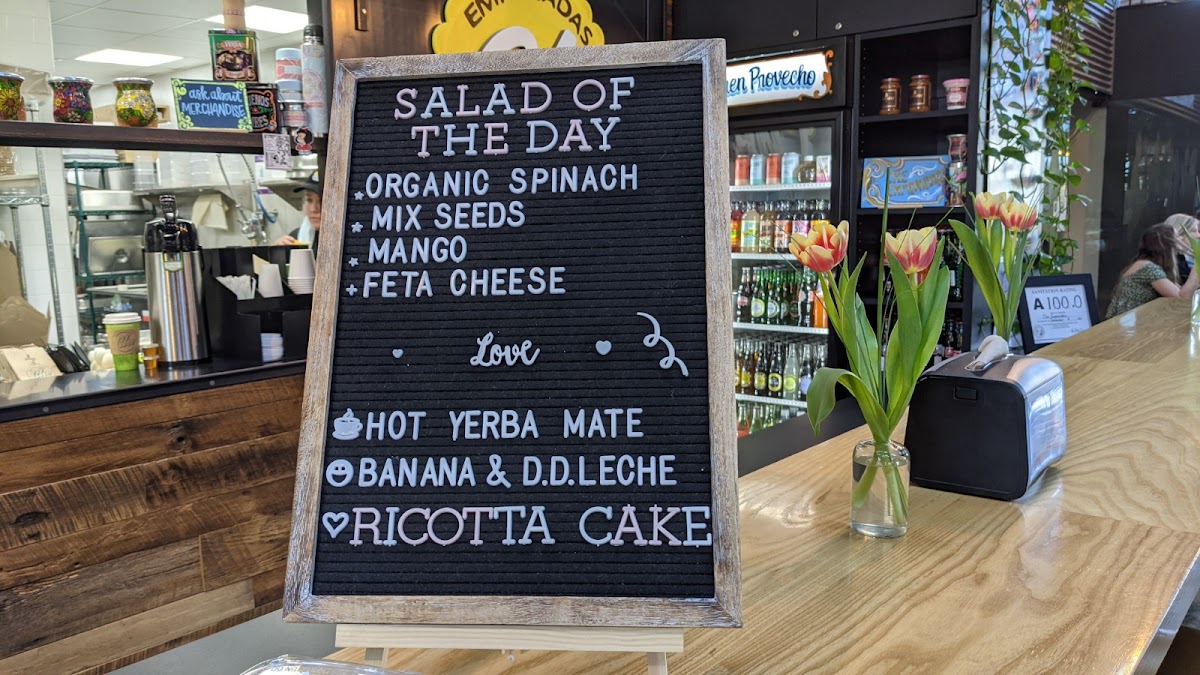 EMPANADAS
ask about
MERCHANDISE
en Provecho
SALAD OF
THE DAY
ORGANIC SPINACH
MIX SEEDS
MANGO
+FETA CHEESE
Love
HOT YERBA MATE
BANANA & D.D.LECHE
RICOTTA CAKE
SANITATION RATING
A 100.0